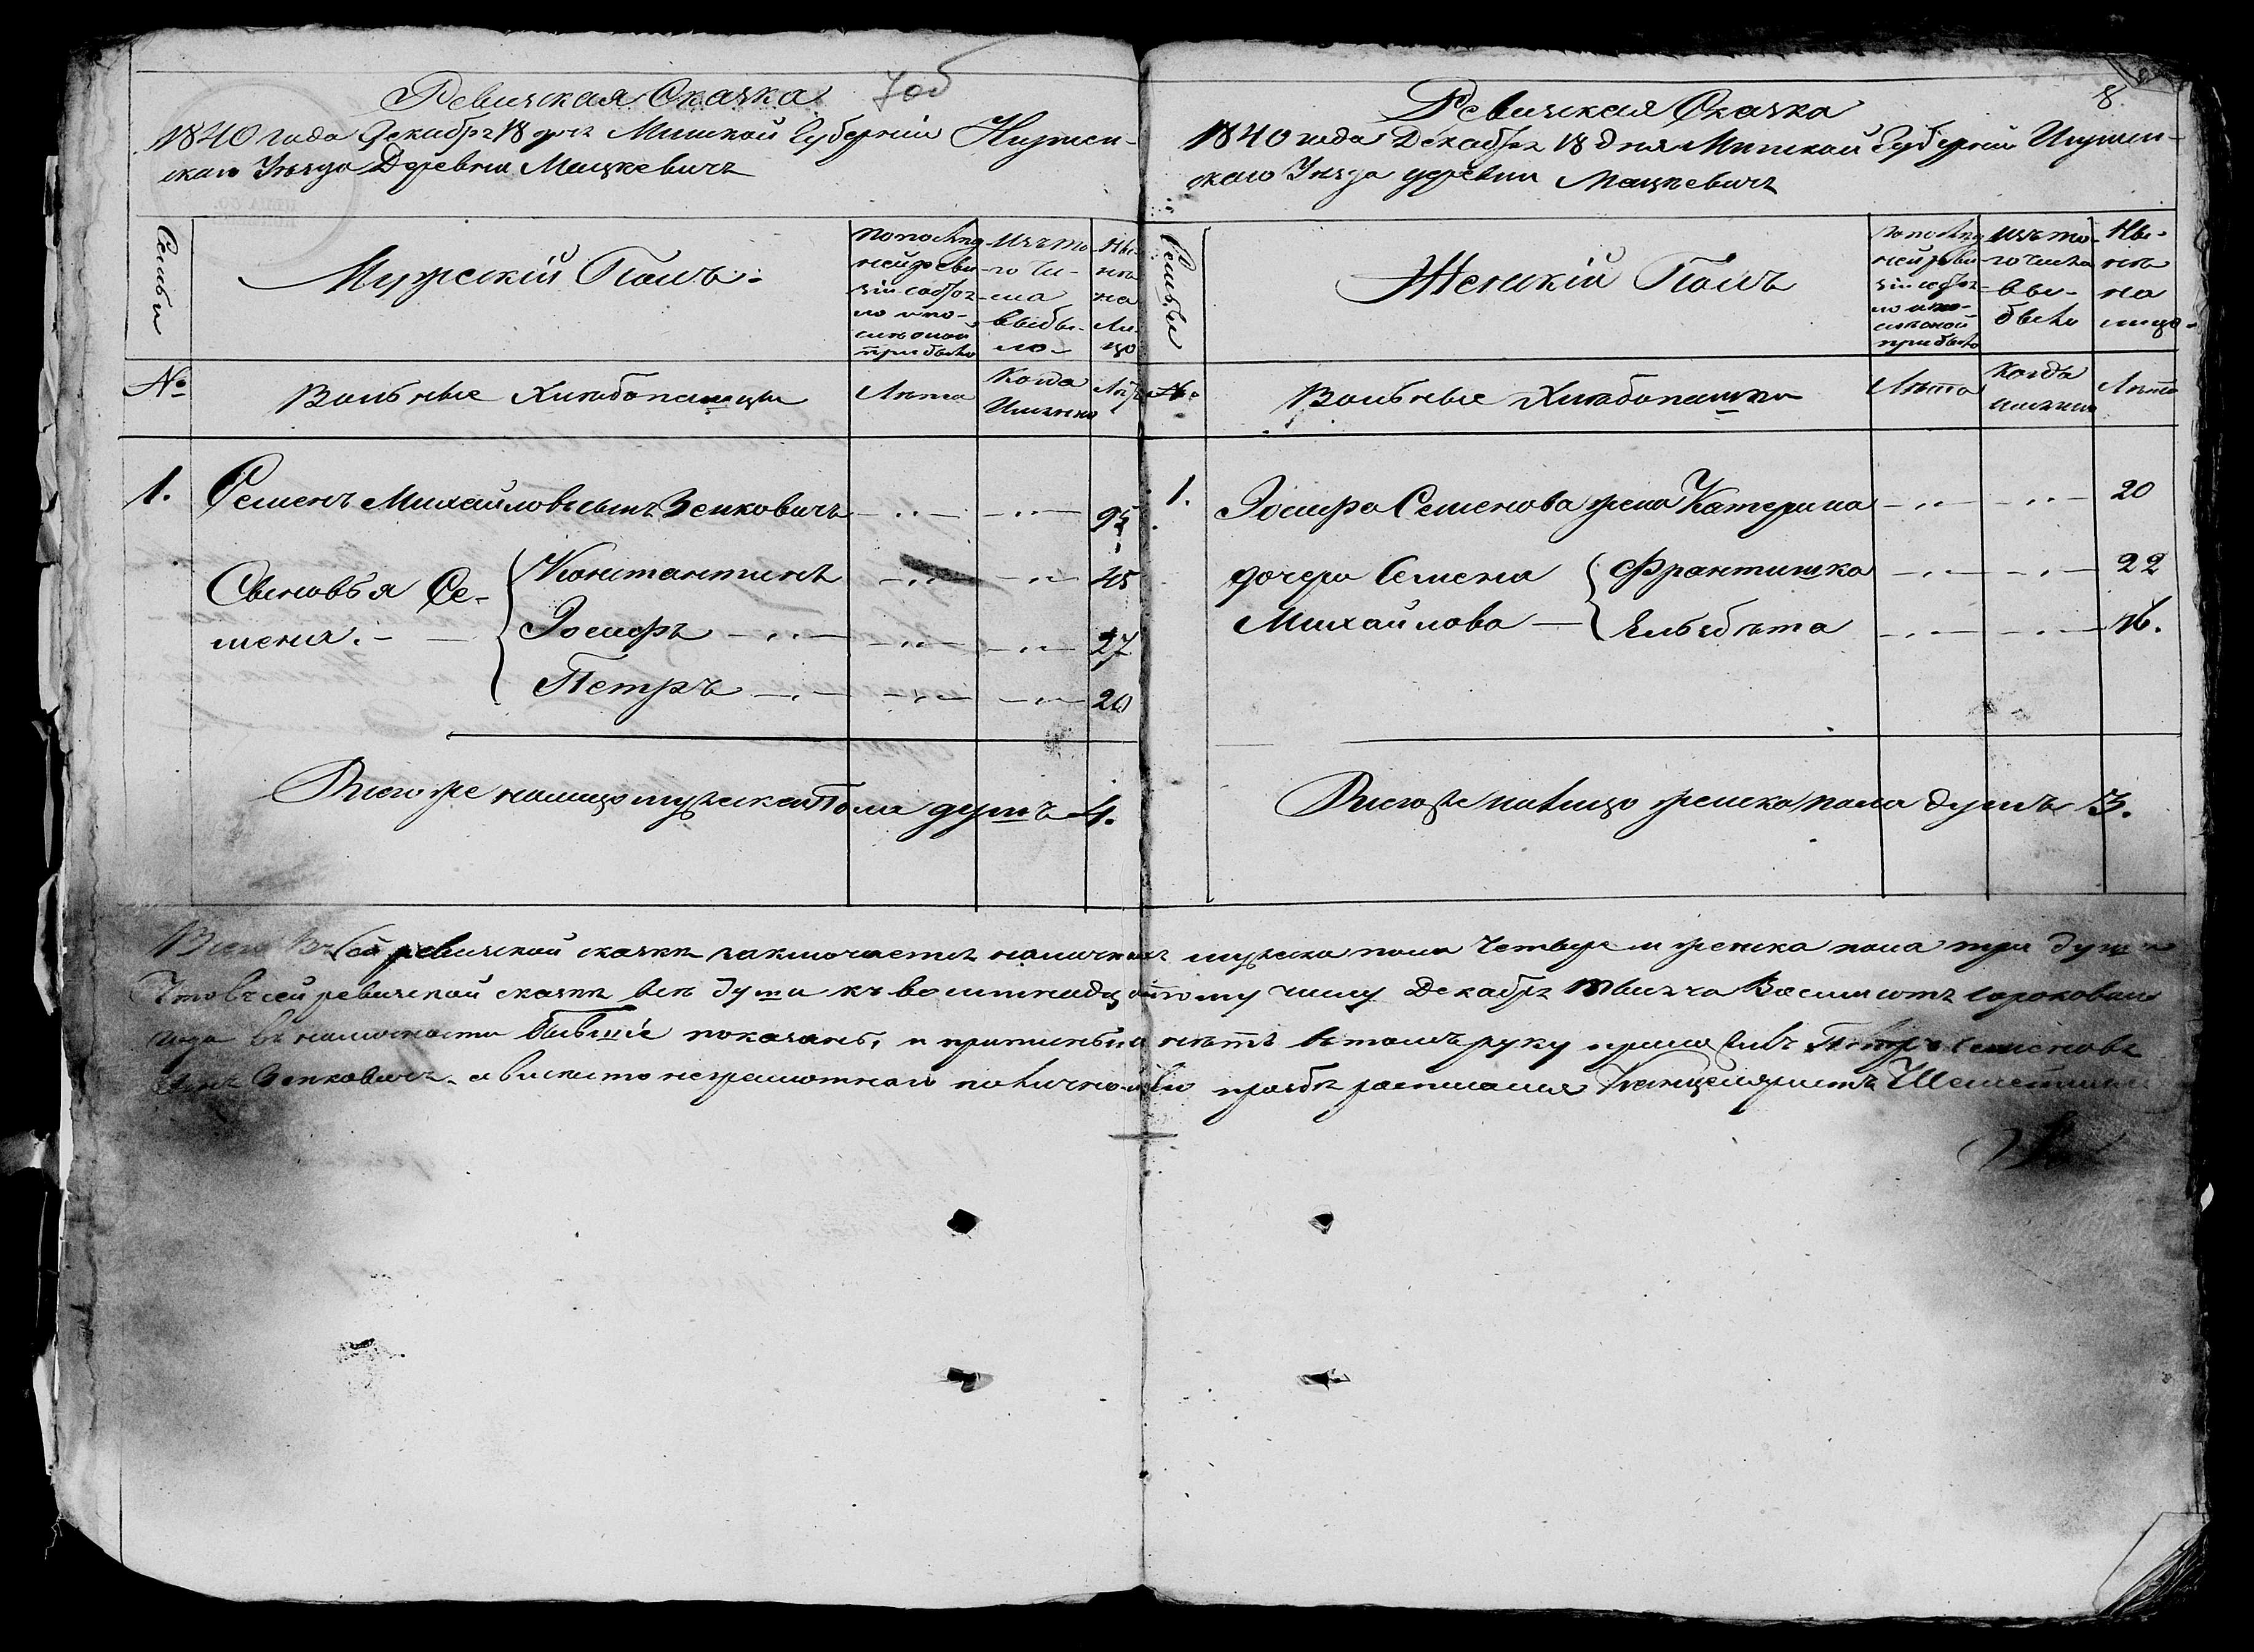 7об
Ревизская Сказка
1840 года Декабря 18 дня Минской Губерніи Игумен-
скаго Уѣзда Деревни Мацкевичъ
Семьи
Мужескій Полъ.
по послѣд
ней реви
зіи состоя
ло и по-
слѣ оной
прибыло
изъ то-
го чи-
сла
выбы-
ло
Ны-
нѣ
на
ли-
цо
№
Вольные Хлѣбопашцы
Лѣта
Когда
Именно
Лѣта
1. Семенъ Михайловъ сынъ Зенковичъ 95
Сыновья Се-
мена.
Константинъ 45
Іосифъ 27
Петръ 20
Всего же на лицо мужеска Пола душъ 4.
8.
Ревизская Сказка
1840 года Декабря 18 дня Минской Губерніи Игумен-
скаго Уѣзда деревни Мацкевичъ
Семьи
Женскій Полъ
по послѣд
ней реви
зіи состоя
ло и по-
слѣ оной
прибыло
изъ то-
го числа
вы-
было
Ны-
нѣ
на
лицо
№
Вольные Хлѣбопашцы
Лѣта
Когда
именно
Лѣта
1. Іосифа Семенова жена Катерина 20
дочери Семена
Михайлова
Франтишка 22
Ельзбѣта 16.
Всего же на лицо женска пола душъ 3.
Всего Въ сей ревизской сказкѣ заключается наличныхъ мужеска пола четыре и женска пола три души
Что въ сей ревизской сказкѣ всѣ души къ восемнадцатому числу Декабря мѣсяца Восемьсотъ сороковаго
года въ наличности бывшіе показаны, и прописныхъ нѣтъ въ томъ руку приложилъ Петръ Семеновъ
сынъ Зенковичъ а вмѣсто неграмотнаго по личной его прозьбѣ росписался Канцеляристъ